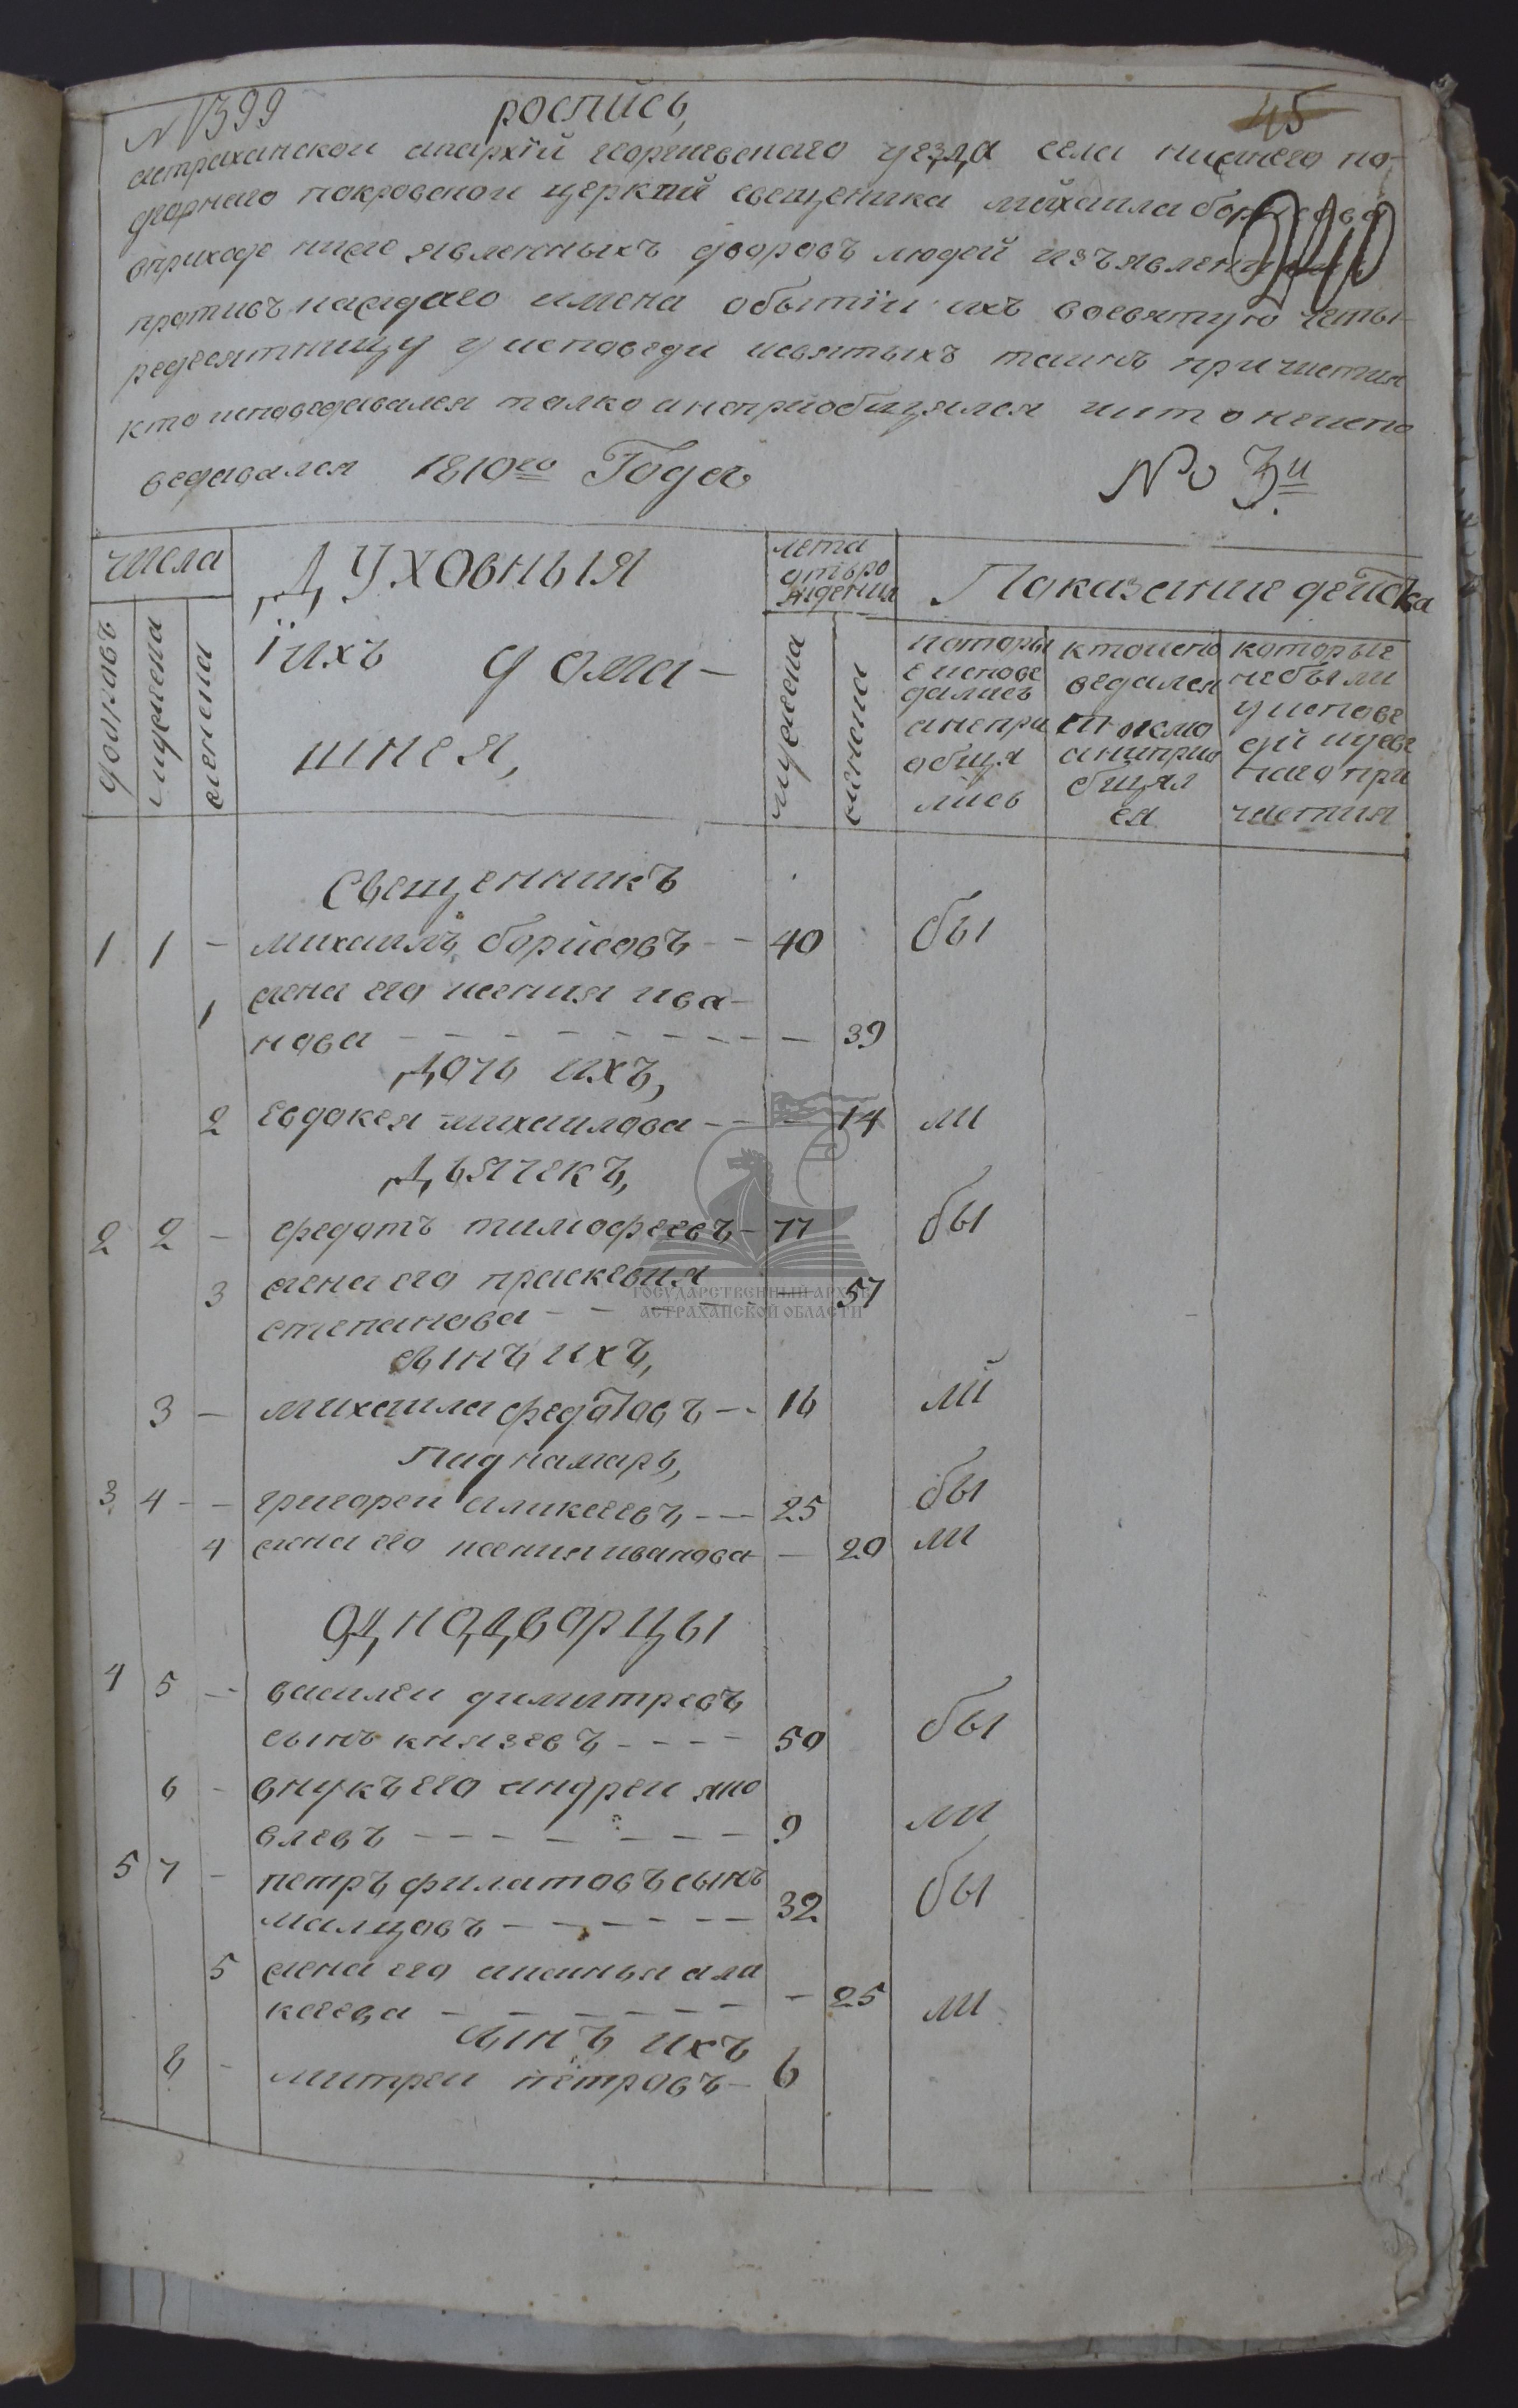 N 1399
роспись,
45
астраханскои епархїй георгиевскаго уезда села нижнего по-
горнаго покровскои церквий свещеника михаила борисова
вприходе ниже явленныхъ дворовъ людей изъявлени
240
противъ каждаго имена обытїи ихъ восвятую четы-
редесятницу уисповеди исвятыхъ таинъ причистия
кто исповедавался толко анеприобщялся икто неиспо
ведавался 1810го Года
No 3й
числа
Духовныя
їихъ дома-
шнея,
лета
отъро
ждения
Показание действа
дворовъ
мужеска
женска
мужеска
женска
которы
е испове
дались
анепри
обща
лись
ктоиспо
ведался
токмо
анеприо
бщял
ся
которые
небыли
уиспове
дй
частия
Свещенникъ
1 1 - михаилъ борисовъ - - 40 бы
1 жена его ксения ива-
нова - - - - - - - - - 39
Дочь ихъ,
2 евдокея михаилова - - - 14 ли
Дьячекъ,
2 2 - федотъ тимофеевъ - 77 бы
3 жена его праскевия
степанова - - - - - 57
ГОСУДАРСТВЕННЫЙ АРХИВ
АСТРАХАНСКОЙ ОБЛАСТИ
сынъ ихъ,
3 - михаила федотовъ - - 16 лй
Паднамарь,
3 4 - - григореи аликсеевъ - - - 25 бы
4 жена его ксения иванова - 20 ли
Однадворцы
4 5 - василеи димитревъ
сынъ князевъ - - - - 50 бы
6 - внукъ его андреи яко
влевъ - - - - - - - 9 ли
5 7 - петръ филатовъ сынъ
малцовъ - - - - - - 32 бы
5 жена его аксинья али
ксеева - - - - - - - 25 ли
сынъ ихъ
8 - митреи петровъ - 6